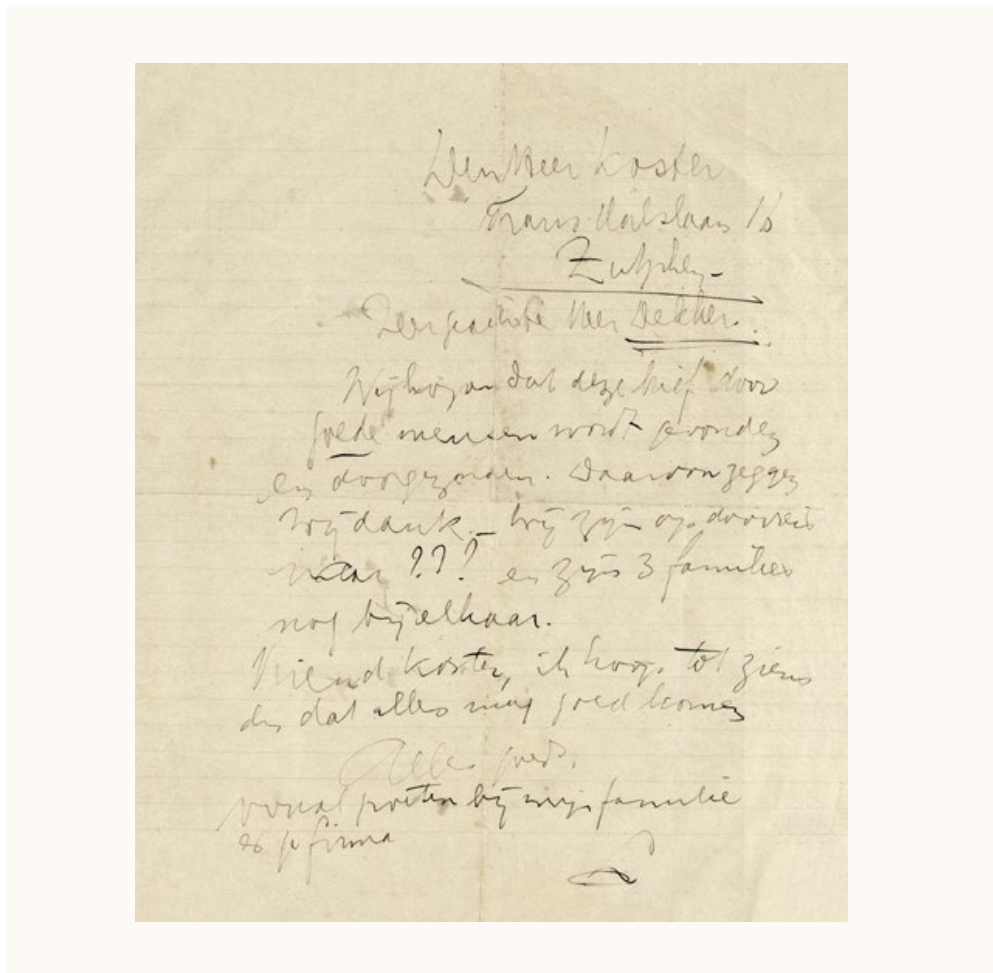 Den Heer Koster
Frans Halslaan 18
Zutphen
Zeer geachte Heer Dekker.
Wij hopen dat deze brief door
goede mensen wordt gevonden
en doorgezonden. Daarvoor zeggen
wij dank. - Wij zijn op doorreis
naar ??? en zijn 3 families
nog bij elkaar.
Vriend Koster, ik hoop tot ziens
en dat alles mag goed komen
Alles goeds,
vooral groeten bij mijn familie
firma